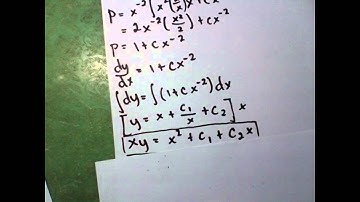 P = x⁻³ (x² (2/x) x + cx
= 2x⁻² (x²/2) + cx⁻²
P = 1 + cx⁻²
dy/dx = 1 + cx⁻²
∫dy = ∫(1 + cx⁻²) dx
[y = x + c₁/x + c₂] x
xy = x² + c₁ + c₂x